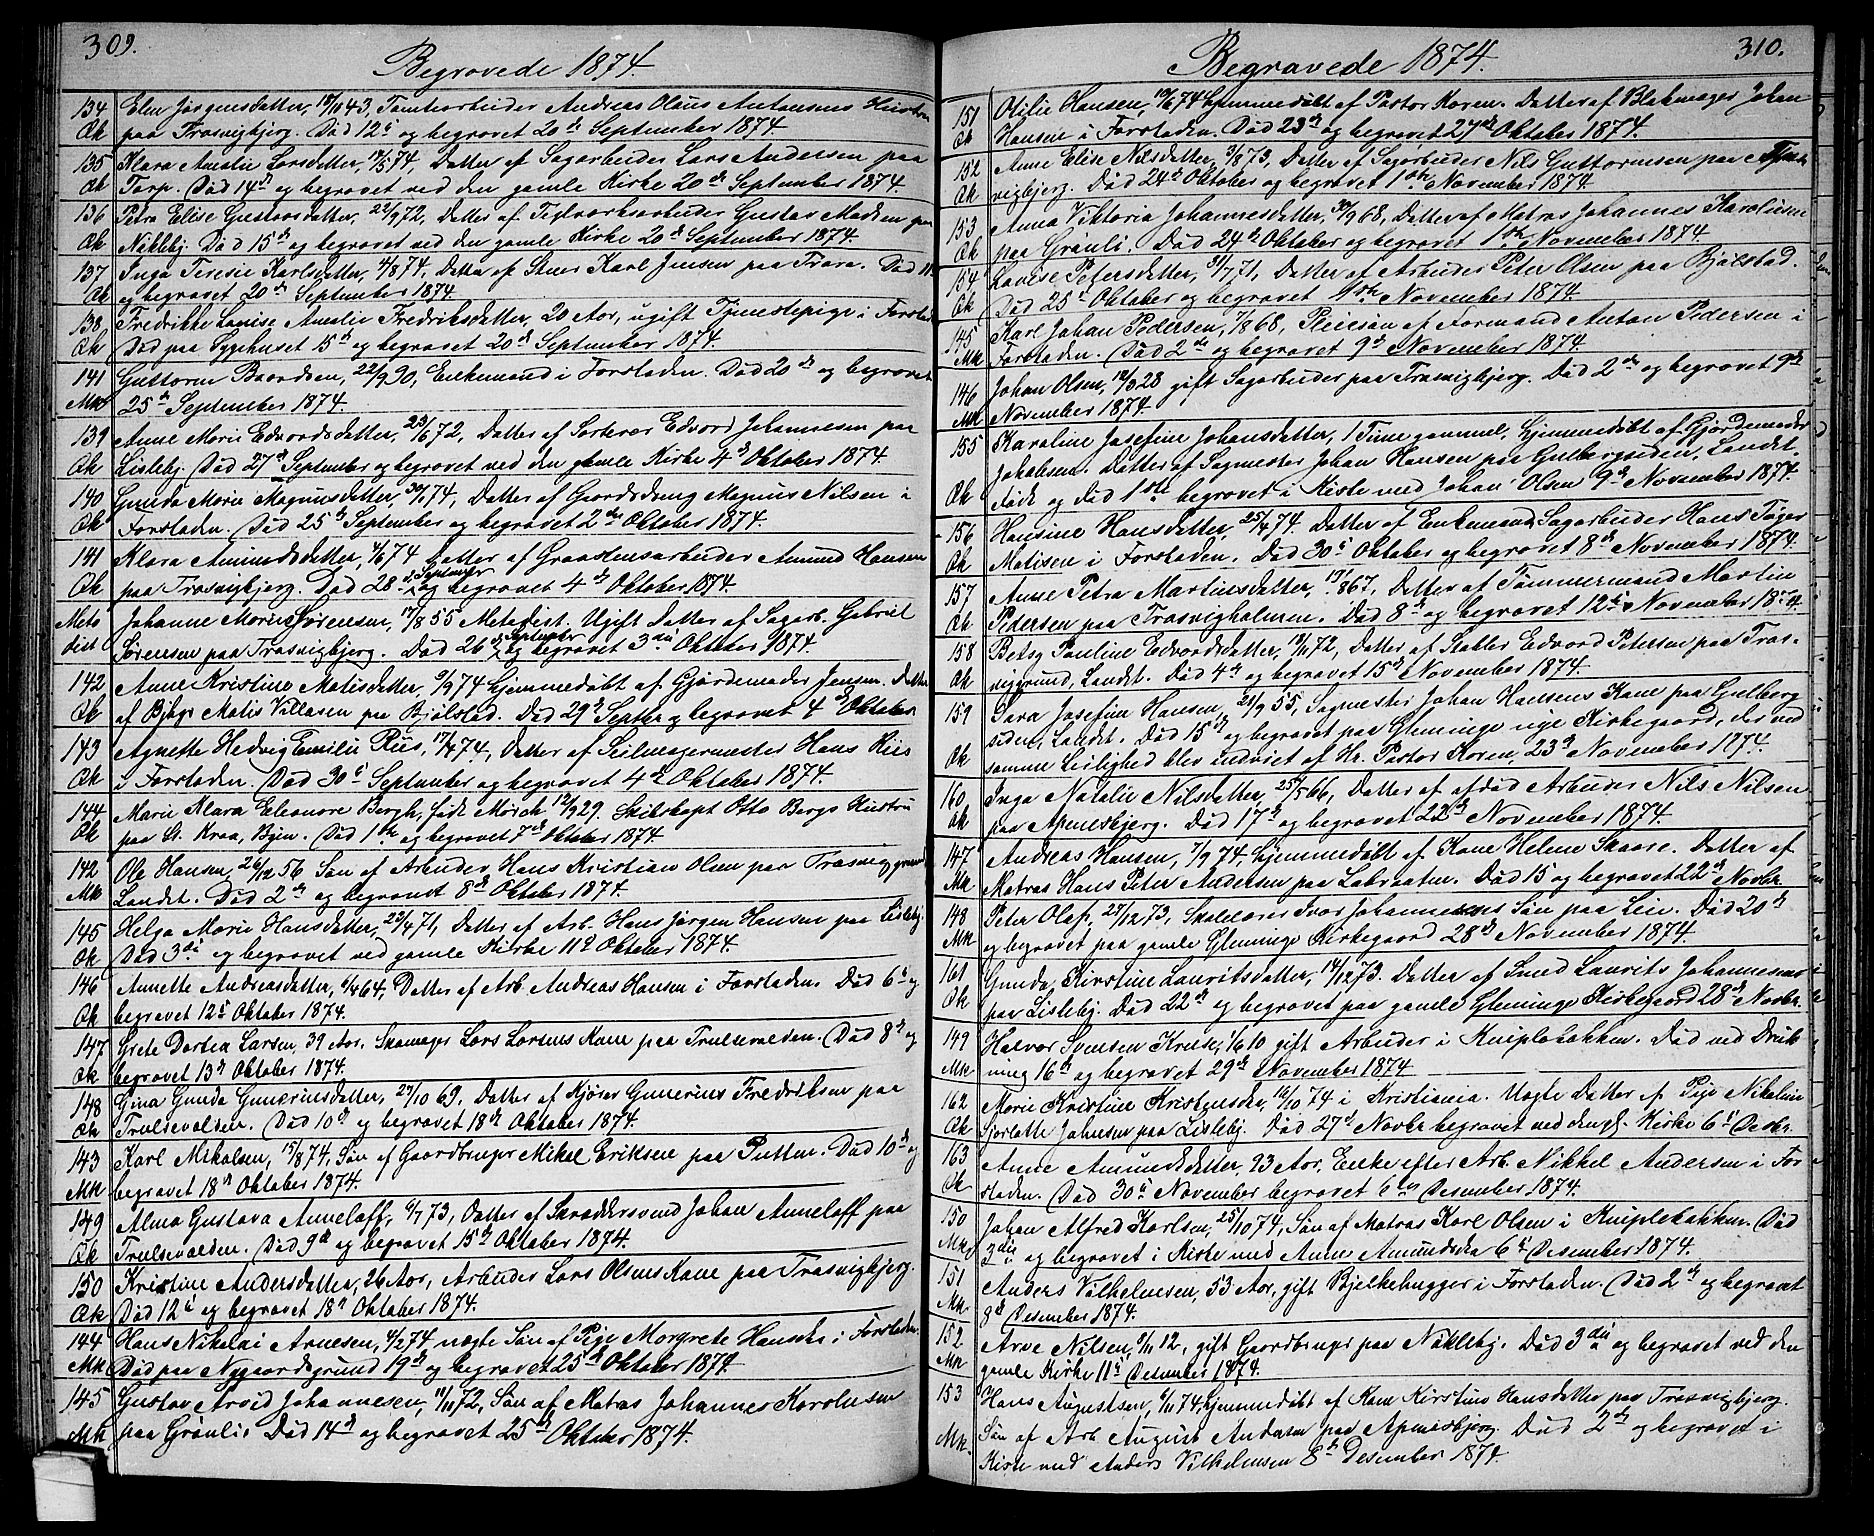 309.
Begravede 1874.
134 Elen Jørgensdatter, 43, Tomtearbeider Andreas Olaus Antonsens Hustru
Qk paa Trosvigbjerg. Død 12te og begravet 20de September 1874.
135 Klara Amalie Larsdatter, 74, Datter af Sagarbeider Lars Andersen paa
Qk Torp. Død 14de og begravet ved den gamle Kirke 20de September 1874.
136 Petra Elise Gustavsdatter, 22/9 72, Datter af Teglværksarbeider Gustav Madsen paa
Qk Nikleby. Død 15de og begravet ved den gamle Kirke 20de September 1874.
137 Inga Teresie Karlsdatter, 4/8 74, Datter af Stuer Karl Jensen paa Trara. Død
Qk og begravet 20de September 1874.
138 Fredrikke Lovise Amalie Fredriksdatter, 20 Aar, ugift Tjenestepige i Forstaden
Qk Død paa Sygehuset 15de og begravet 20de September 1874.
141 Guttorm Baardsen, 22/9 90, Enkemand i Forstaden. Død 20de og begravet
Mk 25de September 1874.
139 Anne Marie Edvardsdatter, 23/6 72, Datter af Sorterer Edvard Johannesen paa
Qk Lisleby. Død 27de September og begravet ved den gamle Kirke 4de Oktober 1874.
140 Gunda Marie Magnusdatter, 74, Datter af Gaardsdreng Magnus Nilsen i
Qk Forstaden. Død 25de September og begravet 2den Oktober 1874.
141 Klara Amundsdatter, 4/6 74 Datter af Graastensarbeider Amund Hansen
Qk paa Trosvigbjerg. Død 28de September og begravet 4de Oktober 1874.
Meto Johanne Marie Sørensen, 17/8 55 Metodist. Ugift Datter af Sagarb. Gabriel
dist Sørensen paa Trosvigbjerg. Død 26de September og begravet 3die Oktober 1874.
142 Anne Kristine Matisdatter, 9/9 74 hjemmedøbt af Gjordemoder Jensen. Datter
Qk af Matis Villasen paa Bjølstad. Død 29de Septer og begravet 4de Oktober
143 Agnette Hedvig Emilie Riis, 17/4 74, Datter af Seilmagermester Hans Riis
Qk i Forstaden. Død 30te September og begravet 4de Oktober 1874.
144 Marie Klara Eleonore Bergh, født Mørch 12/9 29. Skibskapt Otto Berghs Hustru
Qk paa St. Kraa, Byen. Død 1ste og begravet 7de Oktober 1874.
142 Ole Hansen, 26/12 56 Søn af Arbeider Hans Kristian Olsen paa Trosviggrund
Mk Landet. Død 2de og begravet 8de Oktober 1874.
145 Helga Marie Hansdatter, 23/4 71, Datter af Arb. Hans Jørgen Hansen paa Lisleby.
Qk Død 3die og begravet ved gamle Kirke 11te Oktober 1874.
146 Annette Andreasdatter, 6/4 64, Datter af Arb. Andreas Hansen i Forstaden Død 6te og
Qk begravet 12te Oktober 1874.
147 Grete Dortea Larsen, 39 Aar, Skomager Lars Larsens Kone paa Trulsevolden. Død 8de og
Qk begravet 13de Oktober 1874.
148 Gina Gunda Gunerinsdatter, 27/10 69. Datter af Kjører Gunerius Fredriksen paa
Qk Trulsevolden. Død 10de og begravet 18de Oktober 1874.
143 Karl Mikalsen, 15/8 74, Søn af Gaardbruger Mikel Eriksen paa Putten. Død 10de og
Mk begravet 18de Oktober 1874.
149 Alma Gustava Anneloff, 6/7 73, Datter af Skræddersvend Johan Anneloff paa
Qk Trulsevolden. Død 9de og begravet 15de Oktober 1874.
150 Kristine Andersdatter, 26 Aar, Arbeider Lars Olsens Kone paa Trosvigbjerg.
Qk Død 12te og begravet 18de Oktober 1874.
144 Hans Nikolai Arnesen, 4/2 74 uægte Søn af Pige Margrete Hansdr i Forstaden.
Mk Død paa Nygaardsgrund 19de og begravet 25de Oktober 1874.
145 Gustav Arvid Johannesen, 11/11 72, Søn af Matros Johannes Karolusen
Mk paa Grønli Død 14de og begravet 25de Oktober 1874.
310.
Begravede 1874.
151 Otilie Hansen, 10/6 74 hjemmedøbt af Pastor Koren. Datter af Blokmager Johan
Qk Hansen i Forstaden. Død 23de og begravet 27de Oktober 1874.
152 Anne Elise Nilsdatter, 3/8 73, Datter af Sagarbeider Nils Guttormsen paa Tros
Qk vigbjerg. Død 24de Oktober og begravet 1ste November 1874.
153 Anna Viktoria Johannesdatter, 30/9 68, Datter af Matros Johannes Karolusen
Qk paa Grønli. Død 24de Oktober og begravet 1ste November 1874.
154 Lovise Petersdatter, 31/7 71, Datter af Arbeider Peter Olsen paa Bjølstad.
Qk Død 25te Oktober og begravet 1ste November 1874.
145 Karl Johan Pedersen, 7/8 68, Pleiesøn af Formand Anton Pedersen i
Mk Forstaden. Død 2den og begravet 9de November 1874.
146 Johan Olsen, 28 gift Sagarbeider paa Trosvigbjerg. Død 2den og begravet 9de
Mk November 1874.
155 Karoline Josefine Johansdatter, 1 Time gammel, hjemmedøbt af Gjordemoder
Jakobsen. Datter af Sagmester Johan Hansen paa Gulbergsiden, Landet.
Qk født og død 1ste begravet i Kiste med Johan Olsen 9de November 1874.
156 Hansine Hansdatter, 25/4 74. Datter af Enkemand Sagarbeider Hans Tøger
Qk Matisen i Forstaden. Død 30te Oktober og begravet 8de November 1874.
157 Anne Petra Martinsdatter, 67, Datter af Tømmermand Martin
Qk Pedersen paa Trosvigholmen. Død 8de og begravet 12te November 1874.
158 Betsy Pauline Edvardsdatter, 72, Datter af Stabler Edvard Petersen paa Tros-
Qk viggrund, Landet. Død 4de og begravet 15de November 1874.
159 Sara Josefine Hansen, 21/9 55, Sagmester Johan Hansens Kone paa Gulberg
siden, Landet. Død 15de og begravet paa Glemminge nye Kirkegaard, der ved
Qk samme Leilighed blev indviet af Hr. Pastor Koren, 23de November 1874.
160 Inga Natalie Nilsdatter, 25/5 66, Datter af afdød Arbeider Nils Nilsen
Qk paa Apenesbjerg. Død 17de og begravet 22de November 1874.
147 Andreas Hansen, 7/9 74. hjemmedøbt af Kone Helene Skaare. Datter af
Mk Matros Hans Peter Andersen paa Labraaten. Død 15 og begravet 22de Novbr.
148 Peter Olaf, 27/12 73, Skolelærer Ivar Johannesens Søn paa Leie. Død 20de
Mk og begravet paa gamle Glemminge Kirkegaard 28de November 1874.
161 Gunda Kirstine Lauritsdatter, 14/12 73. Datter af Smed Laurits Johannesen
Qk paa Lisleby. Død 22de og begravet paa gamle Glemminge Kirkegaard 28de Novbr.
149 Halvor Svensen Kruse, 1/6 10 gift Arbeider i Kniplebakken. Død ved Druk
Mk ning 16de og begravet 29de November 1874
162 Marie Kristine Kristensdr, 74 i Kristiania. Uægte Datter af Pige Nikoline
Qk Sjarlotte Johnsen paa Lisleby. Død 27de Novbr begravet ved den gl. Kirke 6te Desbr.
163 Anne Amundsdatter, 93 Aar. Enke efter Arb. Nikkel Andersen i For
Qk staden. Død 30te November begravet 6te Desember 1874.
150 Johan Alfred Karlsen, 25/10 74, Søn af Matros Karl Olsen i Kniplebakken. Død
Mk 3die og begravet i Kiste med Anne Amundsdr 6te Desember 1874.
151 Anders Vilhelmsen, 53 Aar, gift Bjelkehugger i Forstaden. Død 2de og begravet
Mk 8de Desember 1874.
152 Arve Nilsen, 9/11 12, gift Gaardbruger paa Nikleby. Død 3die og begravet ved den
Mk gamle Kirke 11te Desember 1874.
153 Hans Augustsen, 74, hjemmedøbt af Kone Kirstine Hansdatter paa Trosvigbjerg.
Mk. Søn af Arb August Andersen paa Apenesbjerg. Død 2de og begravet i
Kiste med Anders Vilhelmsen 8de Desember 1874.